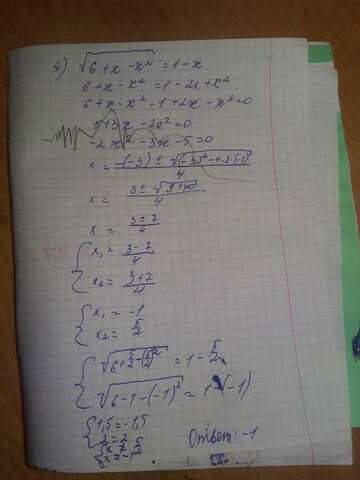 4) √6+x-x² = 1-x
6+x-x² = 1-2x+x²
6+x-x²-1+2x-x²=0
5+3x-2x²=0
-2x²-3x-5=0
x = -(-3) ± √(-3)²-4·2·(-5) / 4
x = 3 ± √9+40 / 4
x = 3±7 / 4
{ x₁ = 3-7 / 4
x₂ = 3+7 / 4
{ x₁ = -1
x₂ = 5/2
{ √6+5/2-(5/2)² = 1-5/2
√6-1-(-1)² = 1-(-1)
{ 1,5=-1,5
2=2
{ x ≠ 5/2
x = -1
Ответ: -1